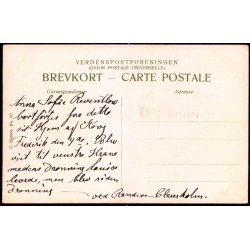 VERDENSPOSTFORENINGEN
(UNION POSTALE UNIVERSELLE)
BREVKORT – CARTE POSTALE
Correspondance
Adresse
Anna Sofie Reventlow
bortføres fra dette
af Kong
Frederik den 4de. Blev
viet til venstre Haand
medens Dronning Louise
levede, men blev siden
Dronning
ved Randers – Clausholm.